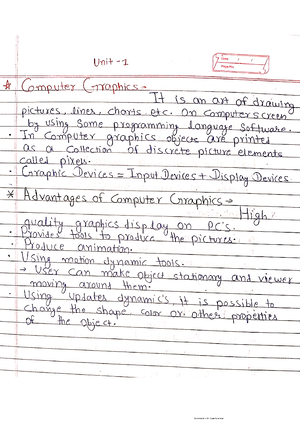 Unit - 1
* Computer Graphics -
It is an art of drawing
pictures, lines, charts etc. On Computer screen
by using some programming language Software.
• In Computer graphics objects are printed
as a Collection of discrete picture elements
called pixels.
• Graphic Devices = Input Devices + Display Devices
* Advantages of Computer Graphics →
High
quality graphics display on PC's.
• Provides tools to produce the pictures.
• Produce animation.
• Using motion dynamic tools.
→ User can make object stationary and viewer
moving around them.
• Using updates dynamic's it is possible to
change the shape color or other properties
of the object.